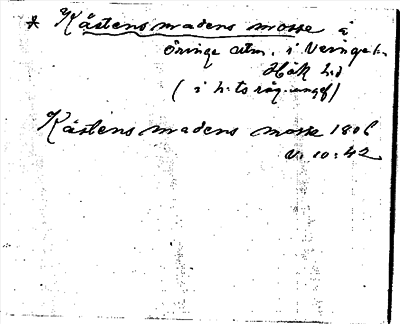 * Kåstensmadens mosse å
Öringe utm. i Veinge s.
Hök h.d
(i h:ts råg.angf)
Kåstensmadens mosse 1806
v. 10:42